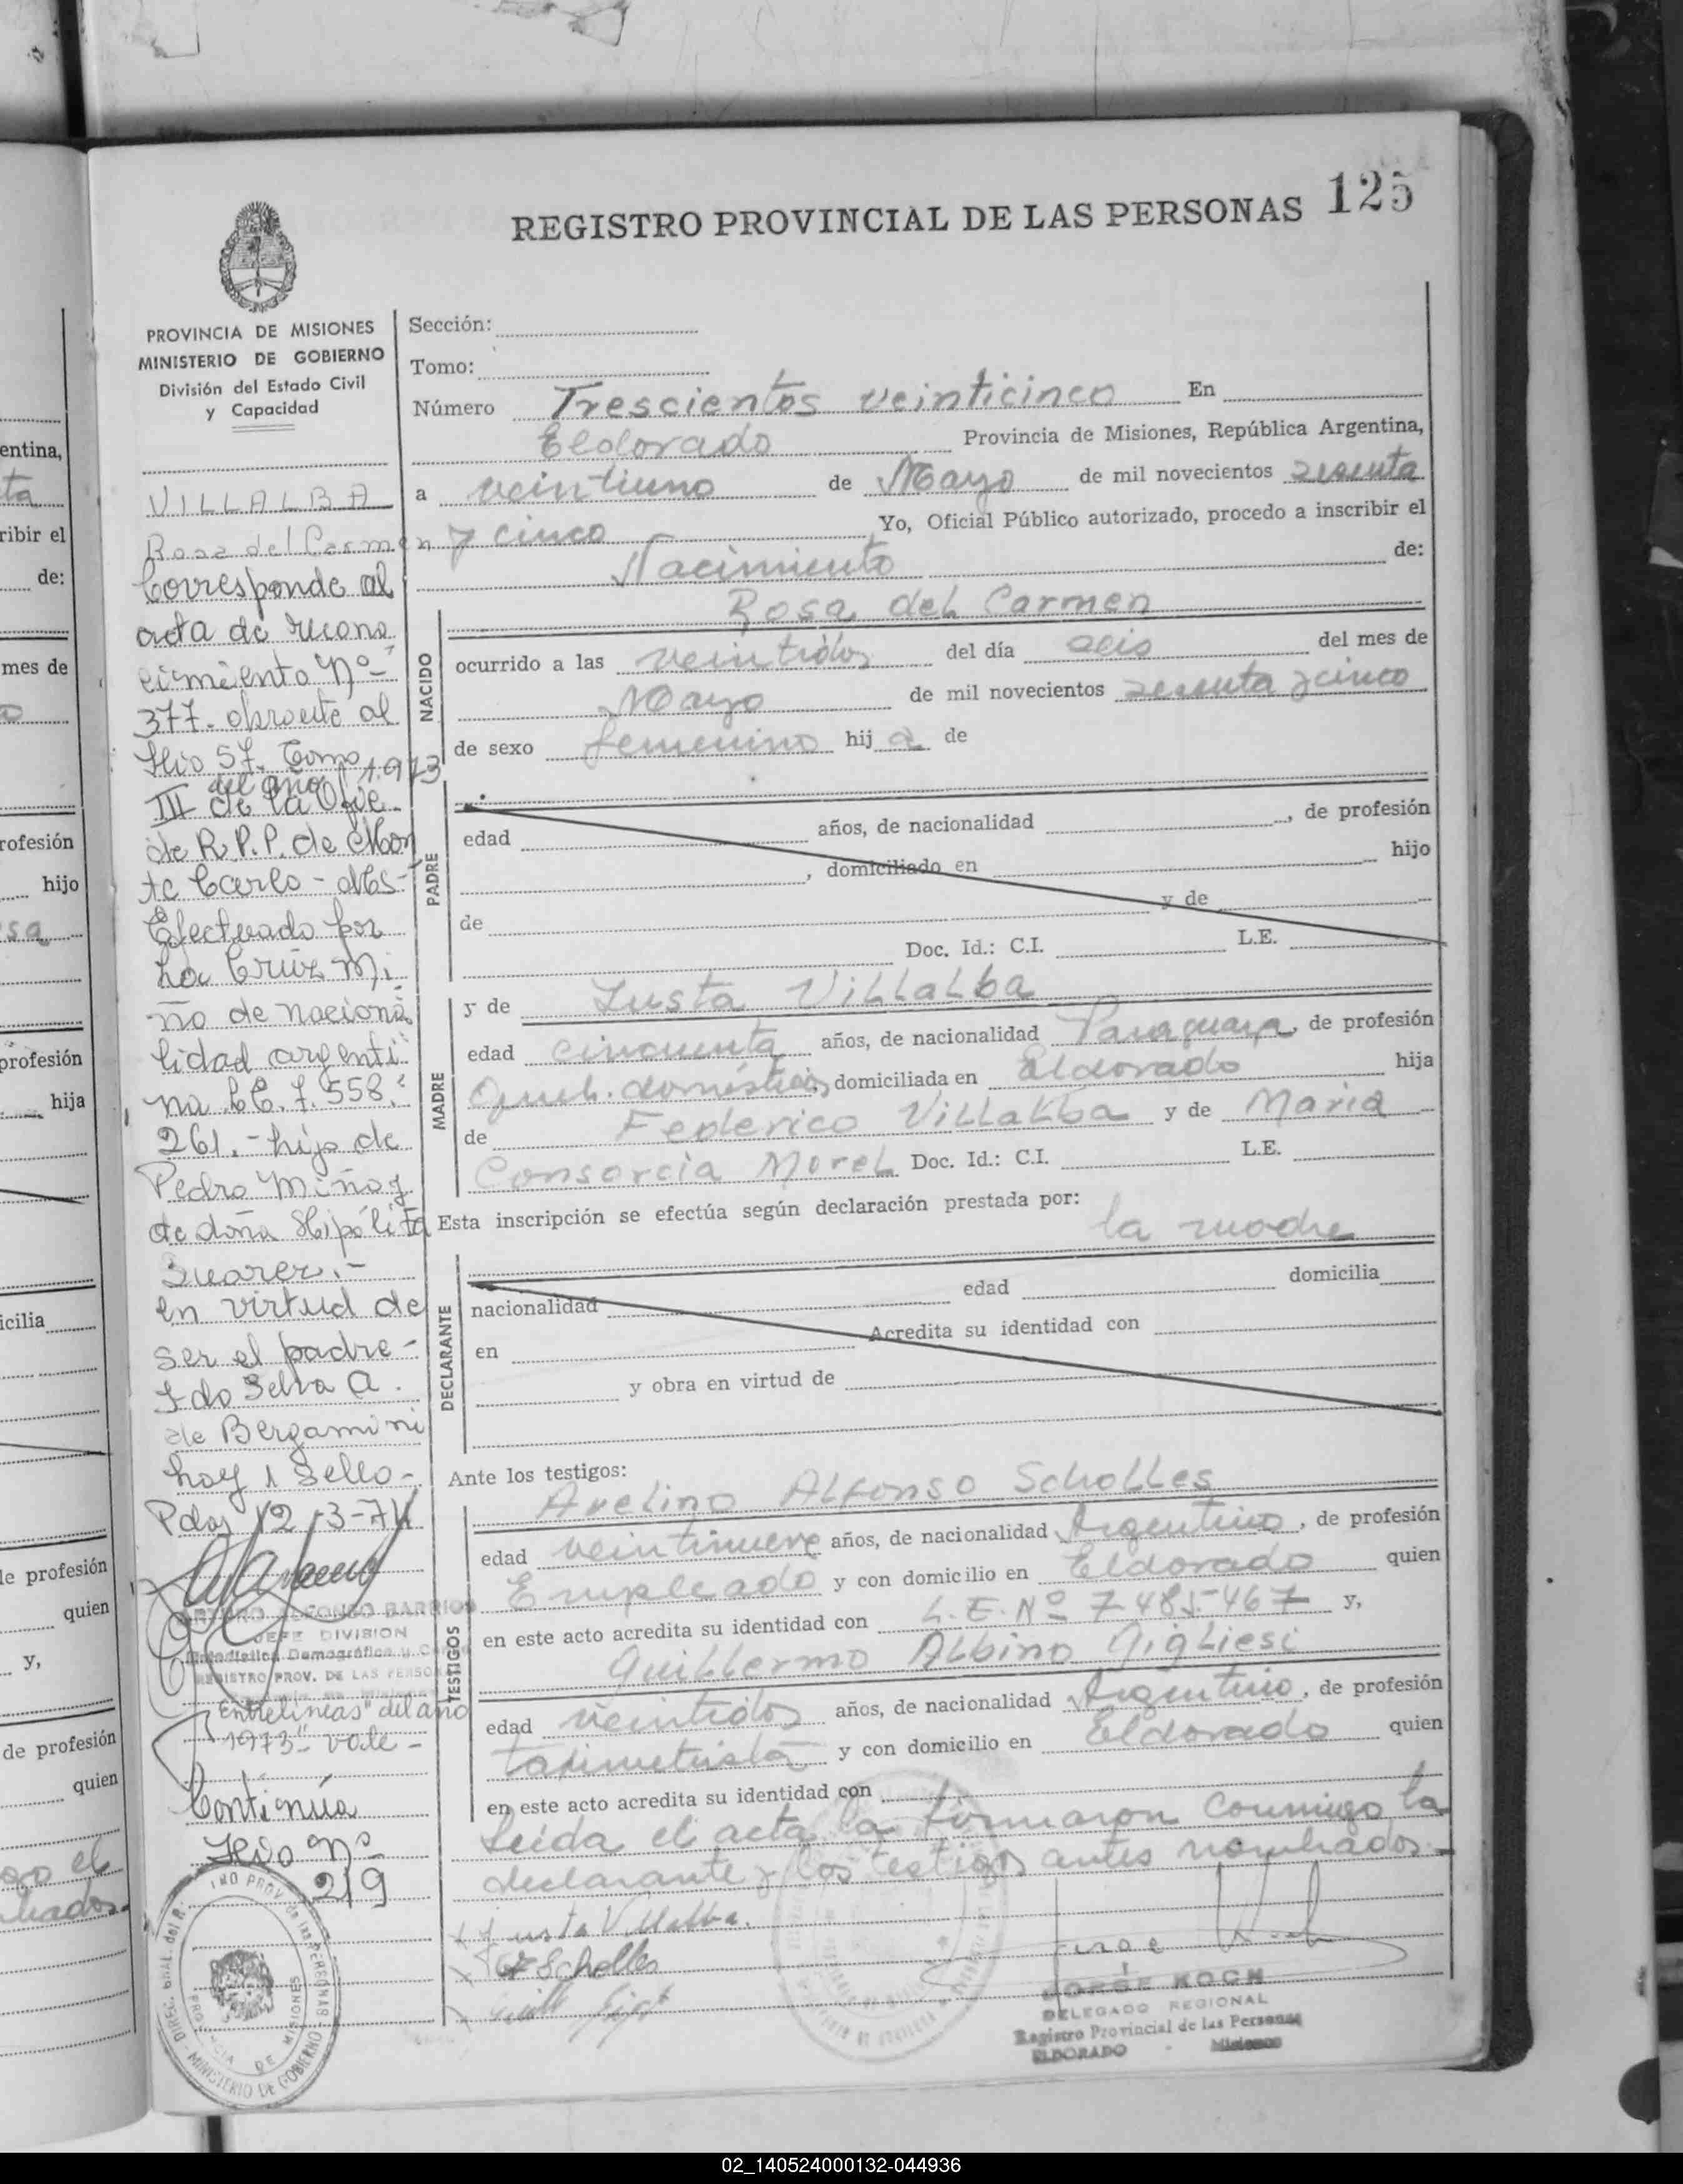 REGISTRO PROVINCIAL DE LAS PERSONAS 125
PROVINCIA DE MISIONES
MINISTERIO DE GOBIERNO
División del Estado Civil
y Capacidad
VILLALBA
Rosa del Carmen
Corresponde al
acta de recono
cimiento Nº
377. obrante al
folio 57. Tomo
del año 1.973
III de la Ofic.
de R.P.P. de Mon
te Carlo - Mes-
Efectuado por
La Cruz Mi
ño de naciona
lidad argenti
na 7.558.
261.- hijo de
Pedro Miño y
de doña Hipólita
Suarez.-
en virtud de
ser el padre-
Fdo Selva A.
de Bergamini
hay 1 sello-
Pdas 12-3-74
ARTURO ALFONSO BARRIOS
JEFE DIVISION
Estadística Demográfica y
REGISTRO PROV. DE LAS PERSO
Entrelíneas "del año
1973" vale-
Continúa
folio nº
219
Sección:
Tomo:
Número Trescientos veinticinco En
Eldorado Provincia de Misiones, República Argentina,
a veintiuno de Mayo de mil novecientos sesenta
y cinco Yo, Oficial Público autorizado, procedo a inscribir el
Nacimiento de:
NACIDO
Rosa del Carmen
ocurrido a las veintidós del día seis del mes de
Mayo de mil novecientos sesenta y cinco
de sexo femenino hij a de
PADRE
edad años, de nacionalidad , de profesión
, domiciliado en hijo
de y de
Doc. Id.: C.I. L.E.
MADRE
y de Justa Villalba
edad cincuenta años, de nacionalidad Paraguaya, de profesión
Queh. domésticos, domiciliada en Eldorado hija
de Federico Villalba y de Maria
Consorcia Morel Doc. Id.: C.I. L.E.
Esta inscripción se efectúa según declaración prestada por:
la madre
DECLARANTE
nacionalidad edad domicilia
en Acredita su identidad con
y obra en virtud de
Ante los testigos:
TESTIGOS
Avelino Alfonso Scholles
edad veintinueve años, de nacionalidad Argentino, de profesión
Empleado y con domicilio en Eldorado quien
en este acto acredita su identidad con L.E. Nº 7485467 y,
Guillermo Albino Gigliesi
edad veintidos años, de nacionalidad Argentino, de profesión
taximetrista y con domicilio en Eldorado quien
en este acto acredita su identidad con
Leida el acta la firmaron conmigo la
declarante y los testigos antes nombrados.-
Justa Villalba.
Scholles
JORGE KOCH
DELEGADO REGIONAL
Registro Provincial de las Personas
ELDORADO - Misiones
02_140524000132-044936